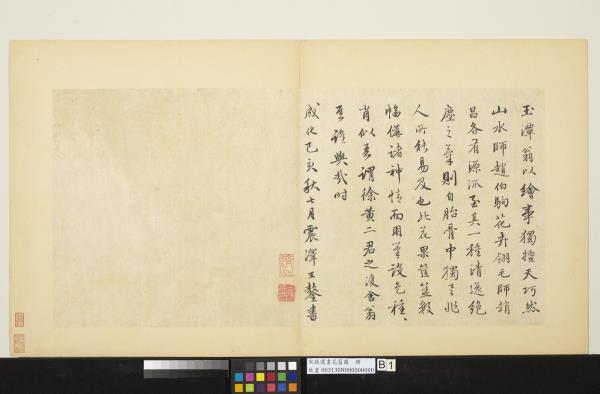 玉潭翁以繪事獨擅天巧然
山水師趙伯駒花卉翎毛師趙
昌各有源流至其一種清逸絕
塵之氣則自胎骨中獨之非
人所能易及也此花果筐籃數
幅僅諸神情而用筆設色種、
肖似吾謂徐黃二君之後舍翁
吾誰與哉時
成化己亥秋七月震澤王鏊書
宋錢選畫花籃圖 冊
故畫 003130N000000000
B 1